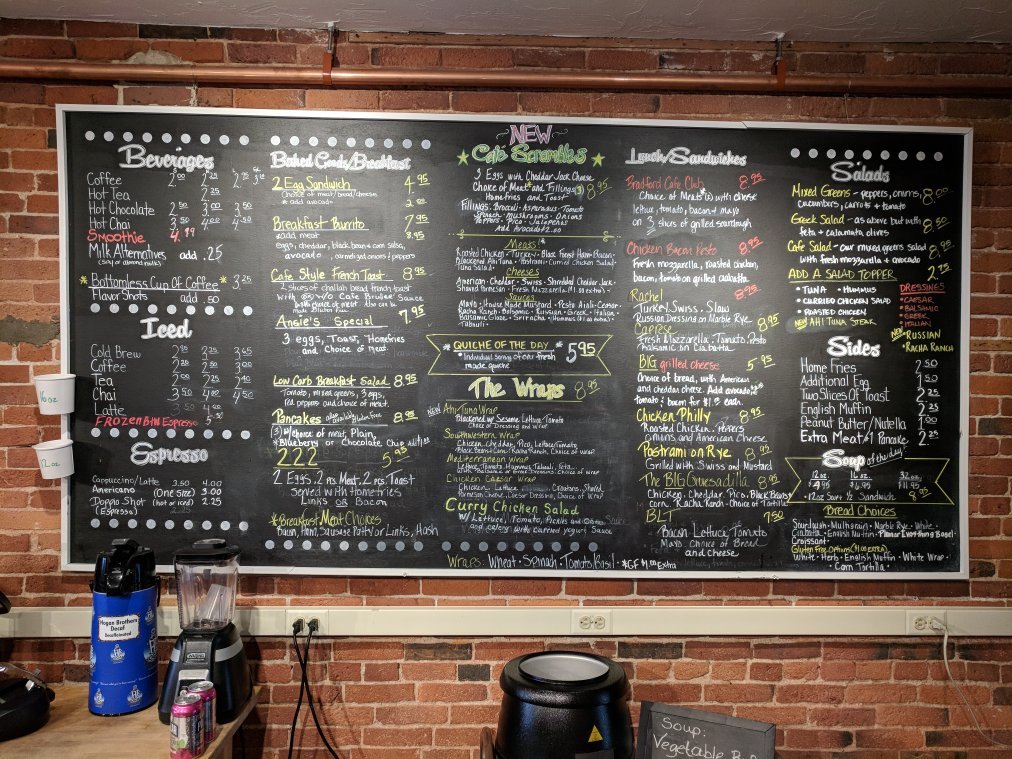 Beverages
Coffee 2.00 2.25 2.75
Hot Tea 2.00
Hot Chocolate 2.50 3.00 3.50
Hot Chai
Smoothie 4.99
Milk Alternatives add .25
(soy or almond milk)
* Bottomless Cup of Coffee * 3.25
Flavor Shots add .50
Iced
Cold Brew 3.45
Coffee
Tea
Chai
Latte
FROZEN BTN ESPRESSO
Espresso
Cappuccino/Latte 3.50 4.00
Americano (One Size) 3.00
Doppio Shot (hot or iced) 2.25
(Espresso)
16 oz
12 oz
Baked Goods/Breakfast
2 Egg Sandwich 4.95
choice of meat/bread/cheese
* add avocado 2.00
Breakfast Burrito 7.95
add meat 8.95
eggs, cheddar, black bean & corn salsa,
avocado, carmelized onions & peppers
Cafe Style French Toast 8.95
2 slices of challah bread french toast
with or w/o Cafe Brulee Sauce
Angie's Special 7.95
3 eggs, Toast, Homefries
and Choice of meat
Low Carb Breakfast Salad 8.95
Tomato, mixed greens, 3 eggs,
red peppers and choice of meat
Pancakes 8.95
(3) w/choice of meat, Plain,
*Blueberry or Chocolate Chip
222 5.95
2 Eggs, 2 pcs. Meat, 2 pcs. Toast
served with Homefries
Links or Bacon
*Breakfast Meat Choices
Bacon, Ham, Sausage Patty or Links, Hash
NEW
Café Scrambles
3 Eggs with Cheddar-Jack Cheese
Choice of Meat and Fillings 8.95
Homefries and Toast
Fillings: Broccoli - Asparagus - Tomato
Spinach - Mushrooms - Onions
Peppers - Pico - Jalapeños
Add Avocado $2.00
Meats:
Roasted Chicken - Turkey - Black Forest Ham - Bacon
Blackened Ahi Tuna - Pastrami - Curried Chicken Salad
Tuna Salad
Cheeses
American - Cheddar - Swiss - Shredded Cheddar Jack
Shaved Parmesan - Fresh Mozzarella ($1.00 extra)
Sauces
Mayo - House Made Mustard - Pesto Aioli - Caesar
Racha Ranch - Balsamic - Russian - Greek - Italian
Balsamic Glaze - Sriracha - Hummus ($1.00 extra)
QUICHE OF THE DAY
*Individual serving of our fresh 5.95
made quiche
The Wraps 8.95
NEW Ahi Tuna Wrap
Blackened w/ Sesame Lettuce-Tomato
Choice of Dressing and Wrap
Southwestern Wrap
Chicken, Cheddar, Pico, Lettuce/Tomato
Mediterranean Wrap
Lettuce, Tomato, Hummus, Tabouli, Feta
Chicken Caesar Wrap
Chicken, Lettuce, Croutons, Shaved
Parmesan Cheese, Caesar Dressing, Choice of Wrap
Curry Chicken Salad
w/ Lettuce, Tomato, Pickles and Onions
and celery with curried yogurt Sauce
Wraps: Wheat - Spinach - Tomato/Basil - *GF $1.00 Extra
Lunch/Sandwiches
Bradford Cafe Club 8.95
Choice of Meat(s) with cheese
lettuce, tomato, bacon & mayo
on 3 slices of grilled sourdough
Chicken Bacon Pesto 8.95
Fresh mozzarella, roasted chicken,
bacon, tomato on grilled ciabatta
Rachel 8.95
Turkey, Swiss, Slaw
Russian Dressing on Marble Rye
Caprese 8.95
Fresh Mozzarella, Tomato, Pesto
Balsamic on Ciabatta
BIG grilled cheese 5.95
Choice of bread, with American
and cheddar cheese. Add avocado $2
Tomato & bacon for $1.5 each
Chicken Philly 8.95
Roasted Chicken, Peppers
Onions and American Cheese
Pastrami on Rye 8.95
Grilled with Swiss and Mustard
The BIG Quesadilla 8.95
Chicken, Cheddar, Pico, Black Beans
Corn, Racha Ranch - Choice of Tortilla
BLT 7.50
Bacon Lettuce Tomato
Mayo Choice of Bread
and cheese
Salads
Mixed Greens - peppers, onions, 8.00
cucumbers, carrots & tomato
Greek Salad - as above but with 8.50
feta & calamata olives
Cafe Salad - our mixed greens salad 8.95
with fresh mozzarella & avocado
ADD A SALAD TOPPER 2.75
* TUNA * HUMMUS
* CURRIED CHICKEN SALAD
* ROASTED CHICKEN
NEW AHI TUNA STEAK
DRESSINGS
* CAESAR
* BALSAMIC
* GREEK
* ITALIAN
NEW * RUSSIAN
* RACHA RANCH
Sides
Home Fries 2.50
Additional Egg 1.50
Two Slices Of Toast 2.50
English Muffin 2.25
Peanut Butter/Nutella 1.00
Extra Meat &1 Pancake 2.25
Soup of the day!
12 oz 16 oz 32 oz
$11.95
- 12oz Soup & 1/2 Sandwich 8.95
Bread Choices
Sourdough - Multigrain - Marble Rye - White -
Ciabatta - English Muffin - Plain or Everything Bagel -
Croissant -
Gluten Free Options ($1.00 extra)
White - Herb - English Muffin - White Wrap -
Corn Tortilla -
Hogan Brothers
Decaf
Decaffeinated
Soup:
Vegetable